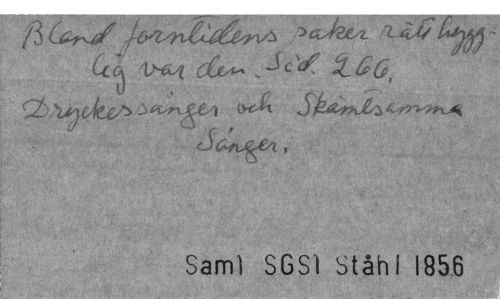 Bland forntidens saker rätt hygg-
lig var den. Sid. 266.
Dryckessånger och Skämtsamma
Sånger.
Saml SGSl Ståhl 1856